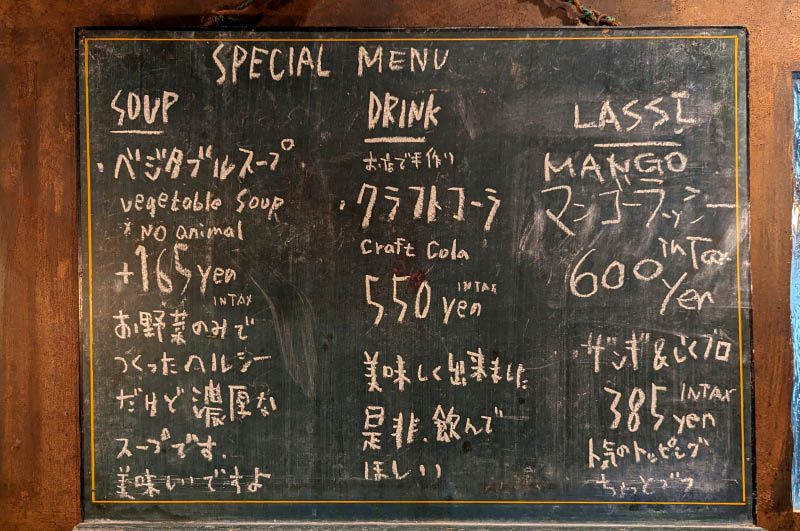 SPECIAL MENU
SOUP
・ベジタブルスープ
vegetable soup
*NO animal
+165yen
IN TAX
お野菜のみで
つくったヘルシー
だけど濃厚な
スープです.
美味いですよ
DRINK
お店で手作り
・クラフトコーラ
craft Cola
IN TAX
550yen
美味しく出来ました
是非、飲んで
ほしい
LASSI
MANGO
マンゴーラッシー
in Tax
600yen
・ザンギ&じくブロ
IN TAX
385yen
人気のトッピング